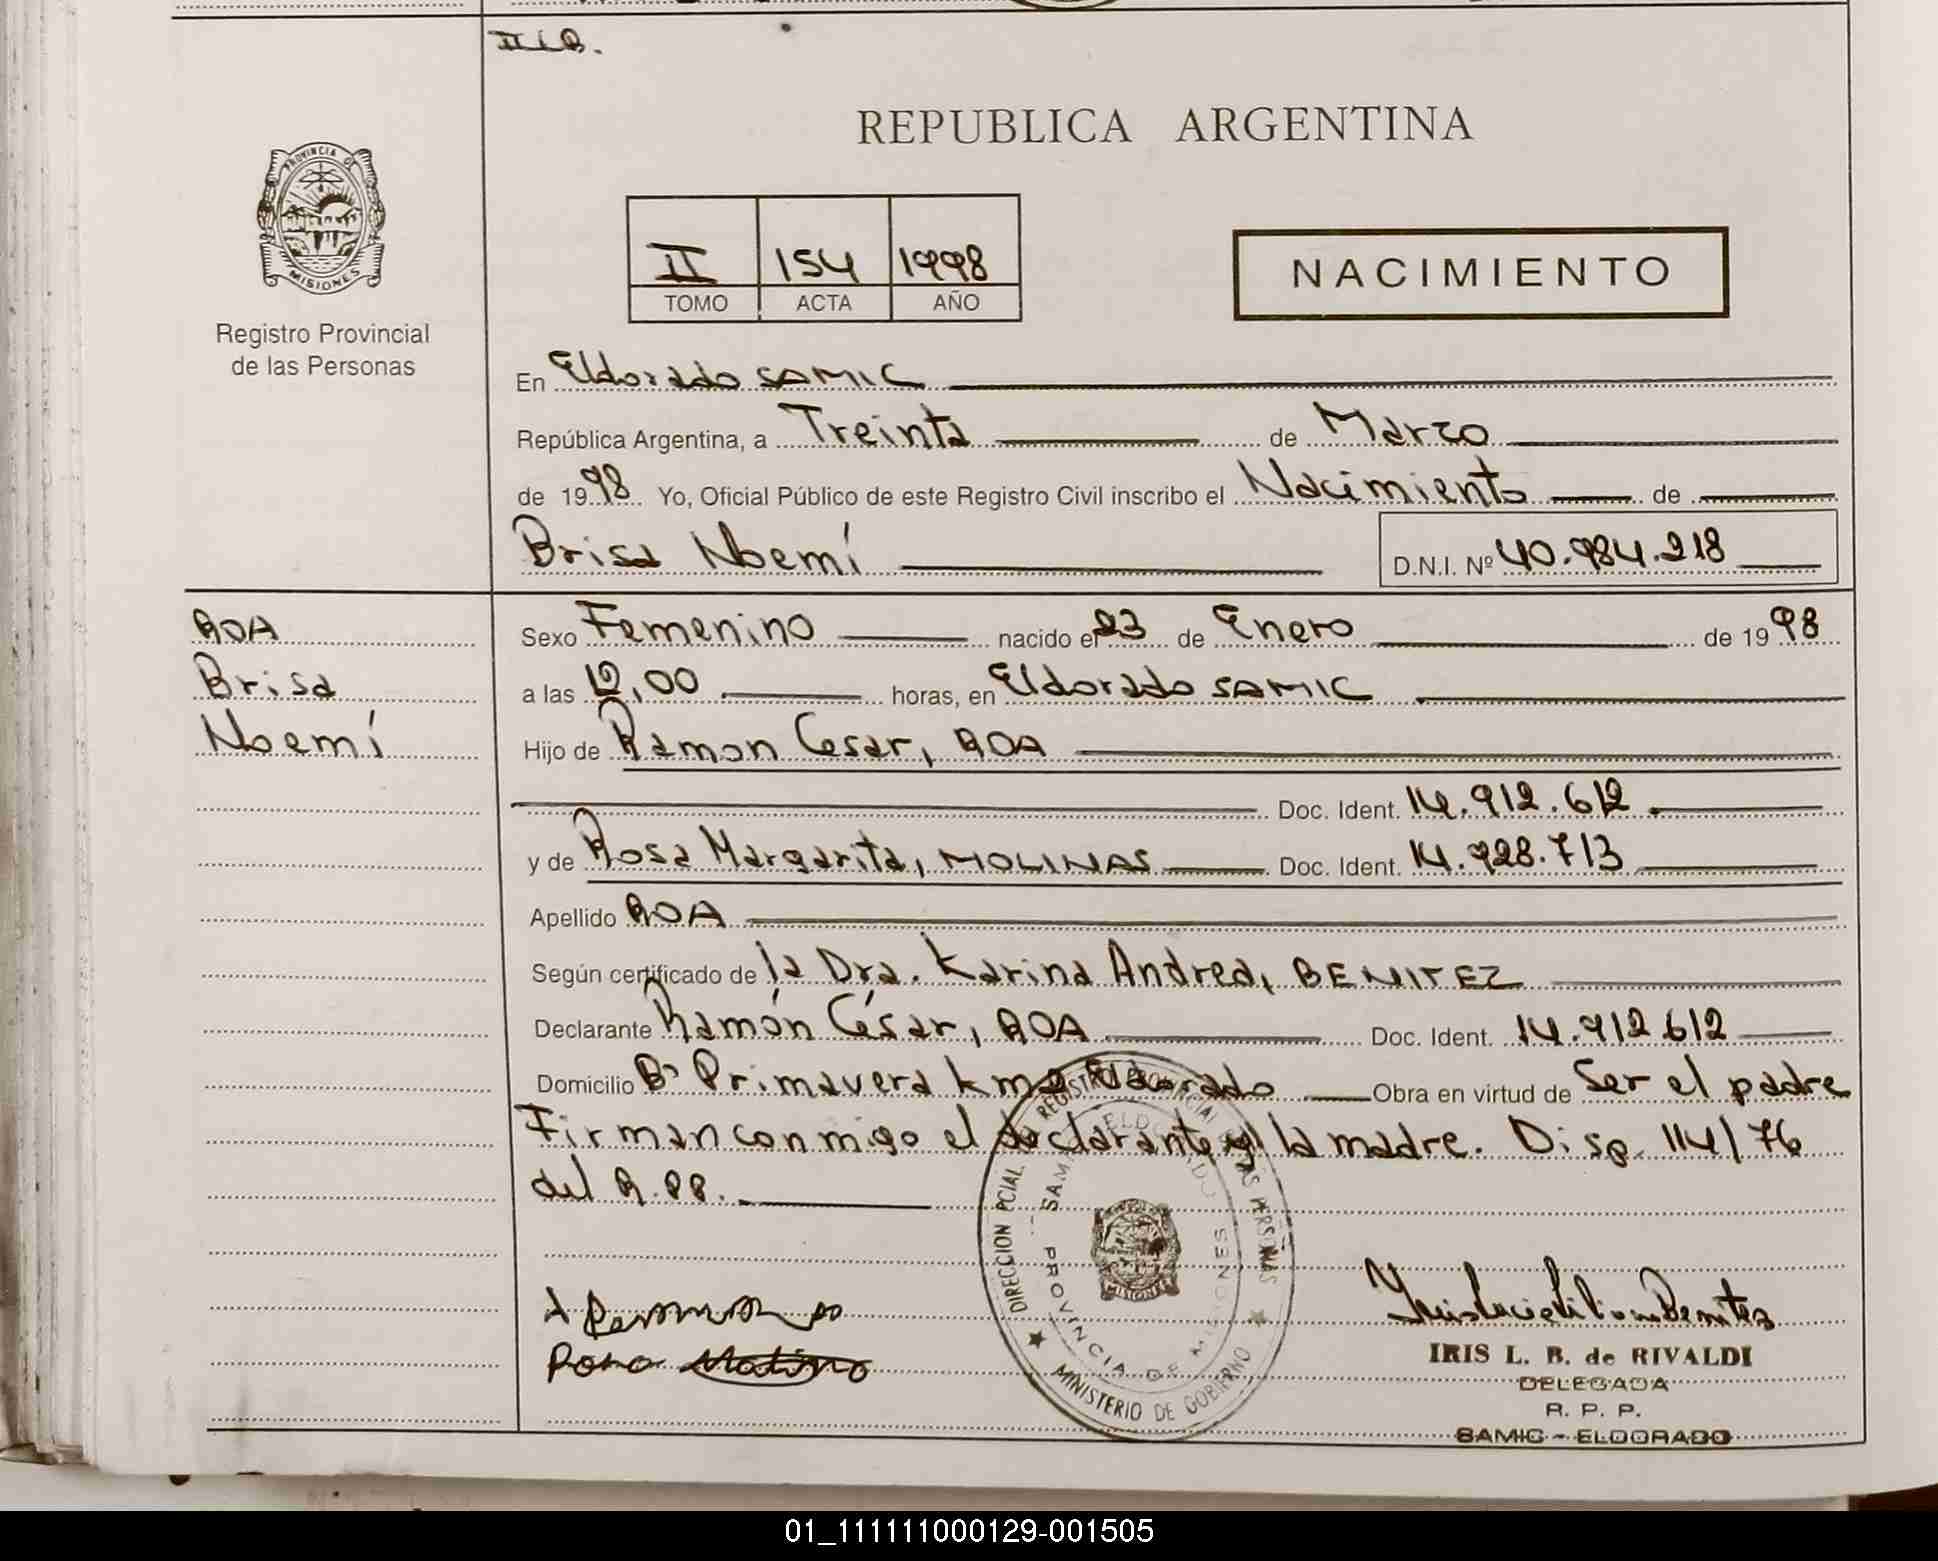 REPUBLICA ARGENTINA
PROVINCIA DE
MISIONES
Registro Provincial
de las Personas
II 154 1998
TOMO ACTA AÑO
NACIMIENTO
En Eldorado SAMIC
República Argentina, a Treinta de Marzo
de 1998 Yo, Oficial Público de este Registro Civil inscribo el Nacimiento de
Brisa Noemí D.N.I. Nº 40.984.218
ROA
Brisa
Noemí
Sexo Femenino nacido el 23 de Enero de 1998
a las 12,00 horas, en Eldorado SAMIC
Hijo de Ramon Cesar, ROA
Doc. Ident. 14.912.612
y de Rosa Margarita, MOLINAS Doc. Ident. 14.928.713
Apellido ROA
Según certificado de la Dra. Karina Andrea, BENITEZ
Declarante Ramón César, ROA Doc. Ident. 14.912612
Domicilio Bº Primavera km Eldorado Obra en virtud de Ser el padre
Firman conmigo el declarante y la madre. Disp. 114/76
del R.PP.
DIRECCION PCIAL REGISTRO PROVINCIAL DE LAS PERSONAS
SAMIC ELDORADO
PROVINCIA DE MISIONES
MISIONES
MINISTERIO DE GOBIERNO
IRIS L. B. de RIVALDI
DELEGADA
R. P. P.
SAMIC - ELDORADO
01_111111000129-001505